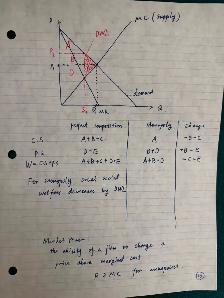 P
MC (supply)
DWL
A
B
C
D
E
demand
MR
Q
perfect competition monopoly change
C.S. A+B+C A -B-C
P.S. D+E B+D +B-E
W= CS+PS A+B+C+D+E A+B+D -C-E
For monopoly social
welfare decreases by DWL
Market Power
the ability of a firm to charge a
price above marginal cost
P > MC for monopolist